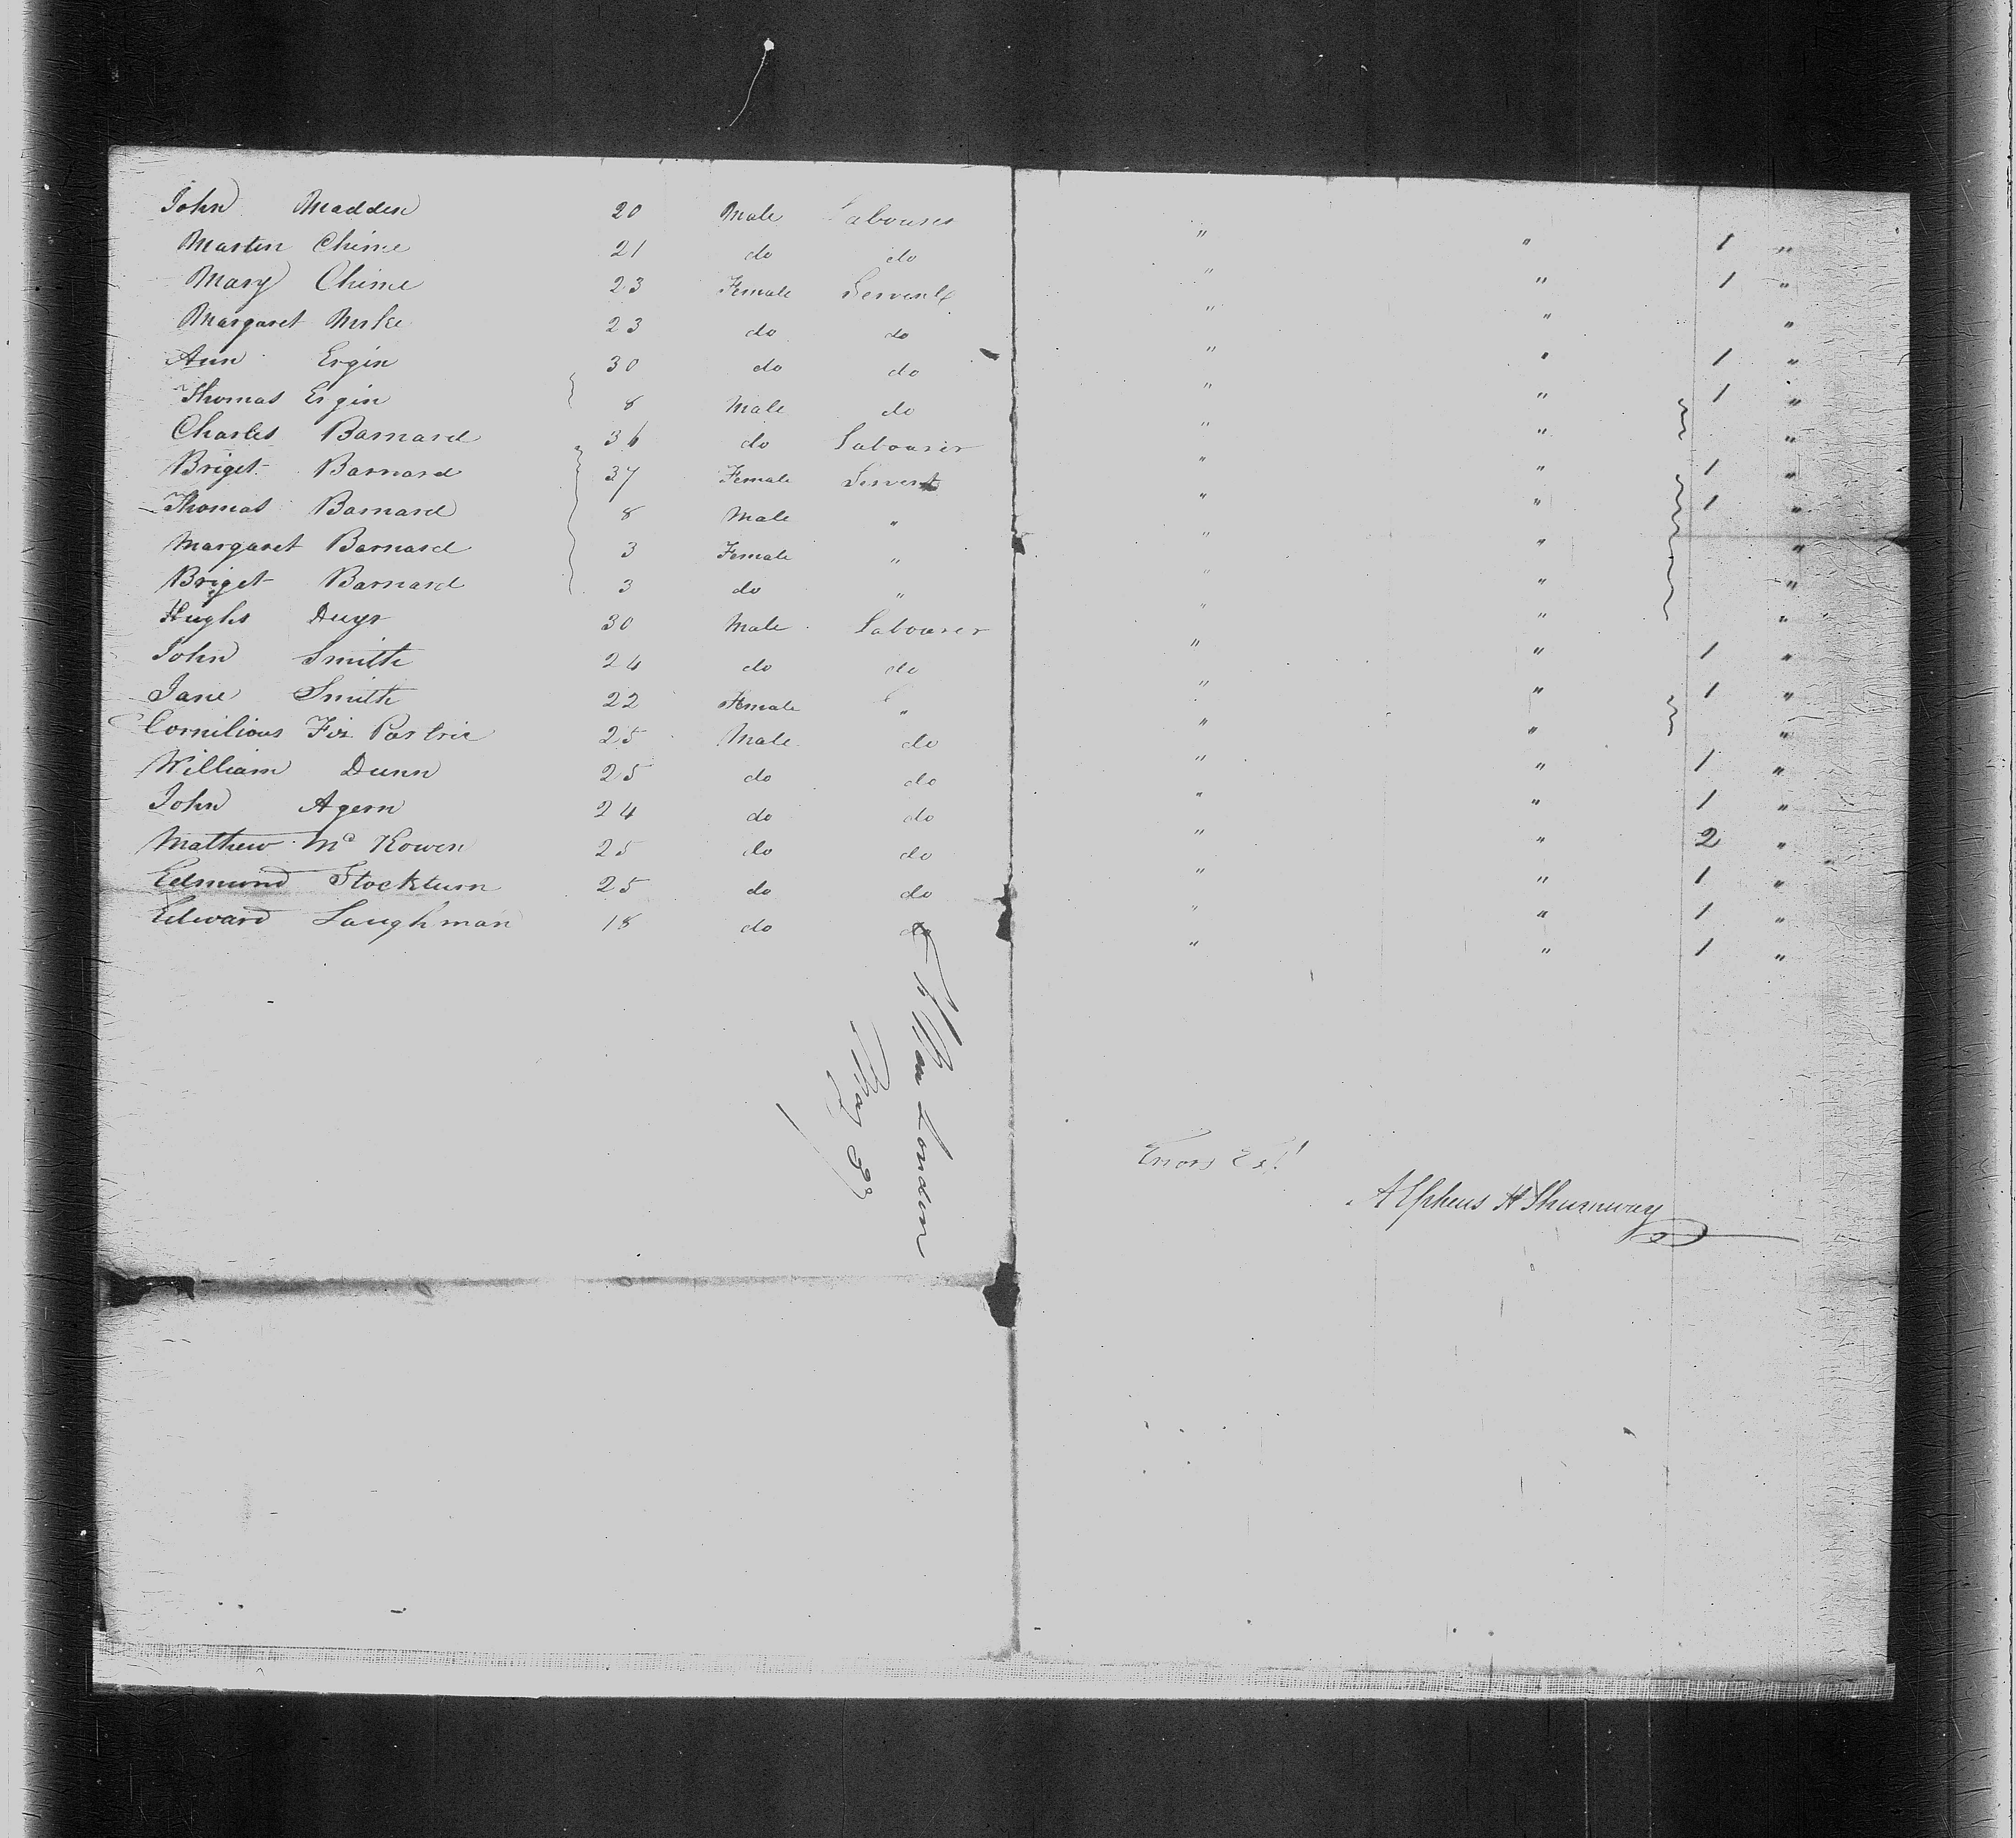 John Madden 20 Male Labourer " " 1 "
Martin Chime 21 do do " " 1 "
Mary Chime 23 Female Servent " " "
Margaret 23 do do " " 1 "
Ann Ergin 30 do do " " 1 "
Thomas Ergin 8 Male do " " "
Charles Barnard 36 do Labourer " " 1 "
Briget Barnard 37 Female Servent " " 1 "
Thomas Barnard 8 Male " " " "
Margaret Barnard 3 Female " " " "
Briget Barnard 3 do " " " "
Hughs 30 Male Labourer " " 1 "
John Smith 24 do do " " 1 "
Jane Smith 22 Female " " " "
Cornilious Fiz Partric 25 Male do " " 1 "
William Dunn 25 do do " " 1 "
John Agern 24 do do " " 2 "
Mathew Mc Kowen 25 do do " " 1 "
Edmund Stockturn 25 do do " " 1 "
Edward Laughman 18 do do " " 1 "
London
May 23
Errors Ext
Alpheus H Shumway